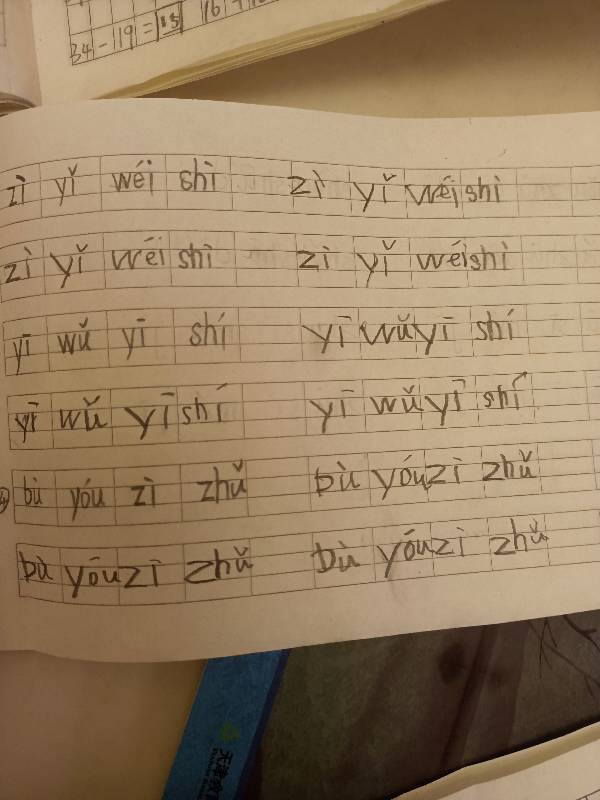 34-119=15 16
zì yǐ wéi shì zì yǐ wéi shì
zì yǐ wéi shì zì yǐ wéi shì
yī wǔ yī shí yī wǔ yī shí
yī wǔ yī shí yī wǔ yī shí
bù yóu zì zhǔ bù yóu zì zhǔ
bù yóu zì zhǔ bù yóu zì zhǔ